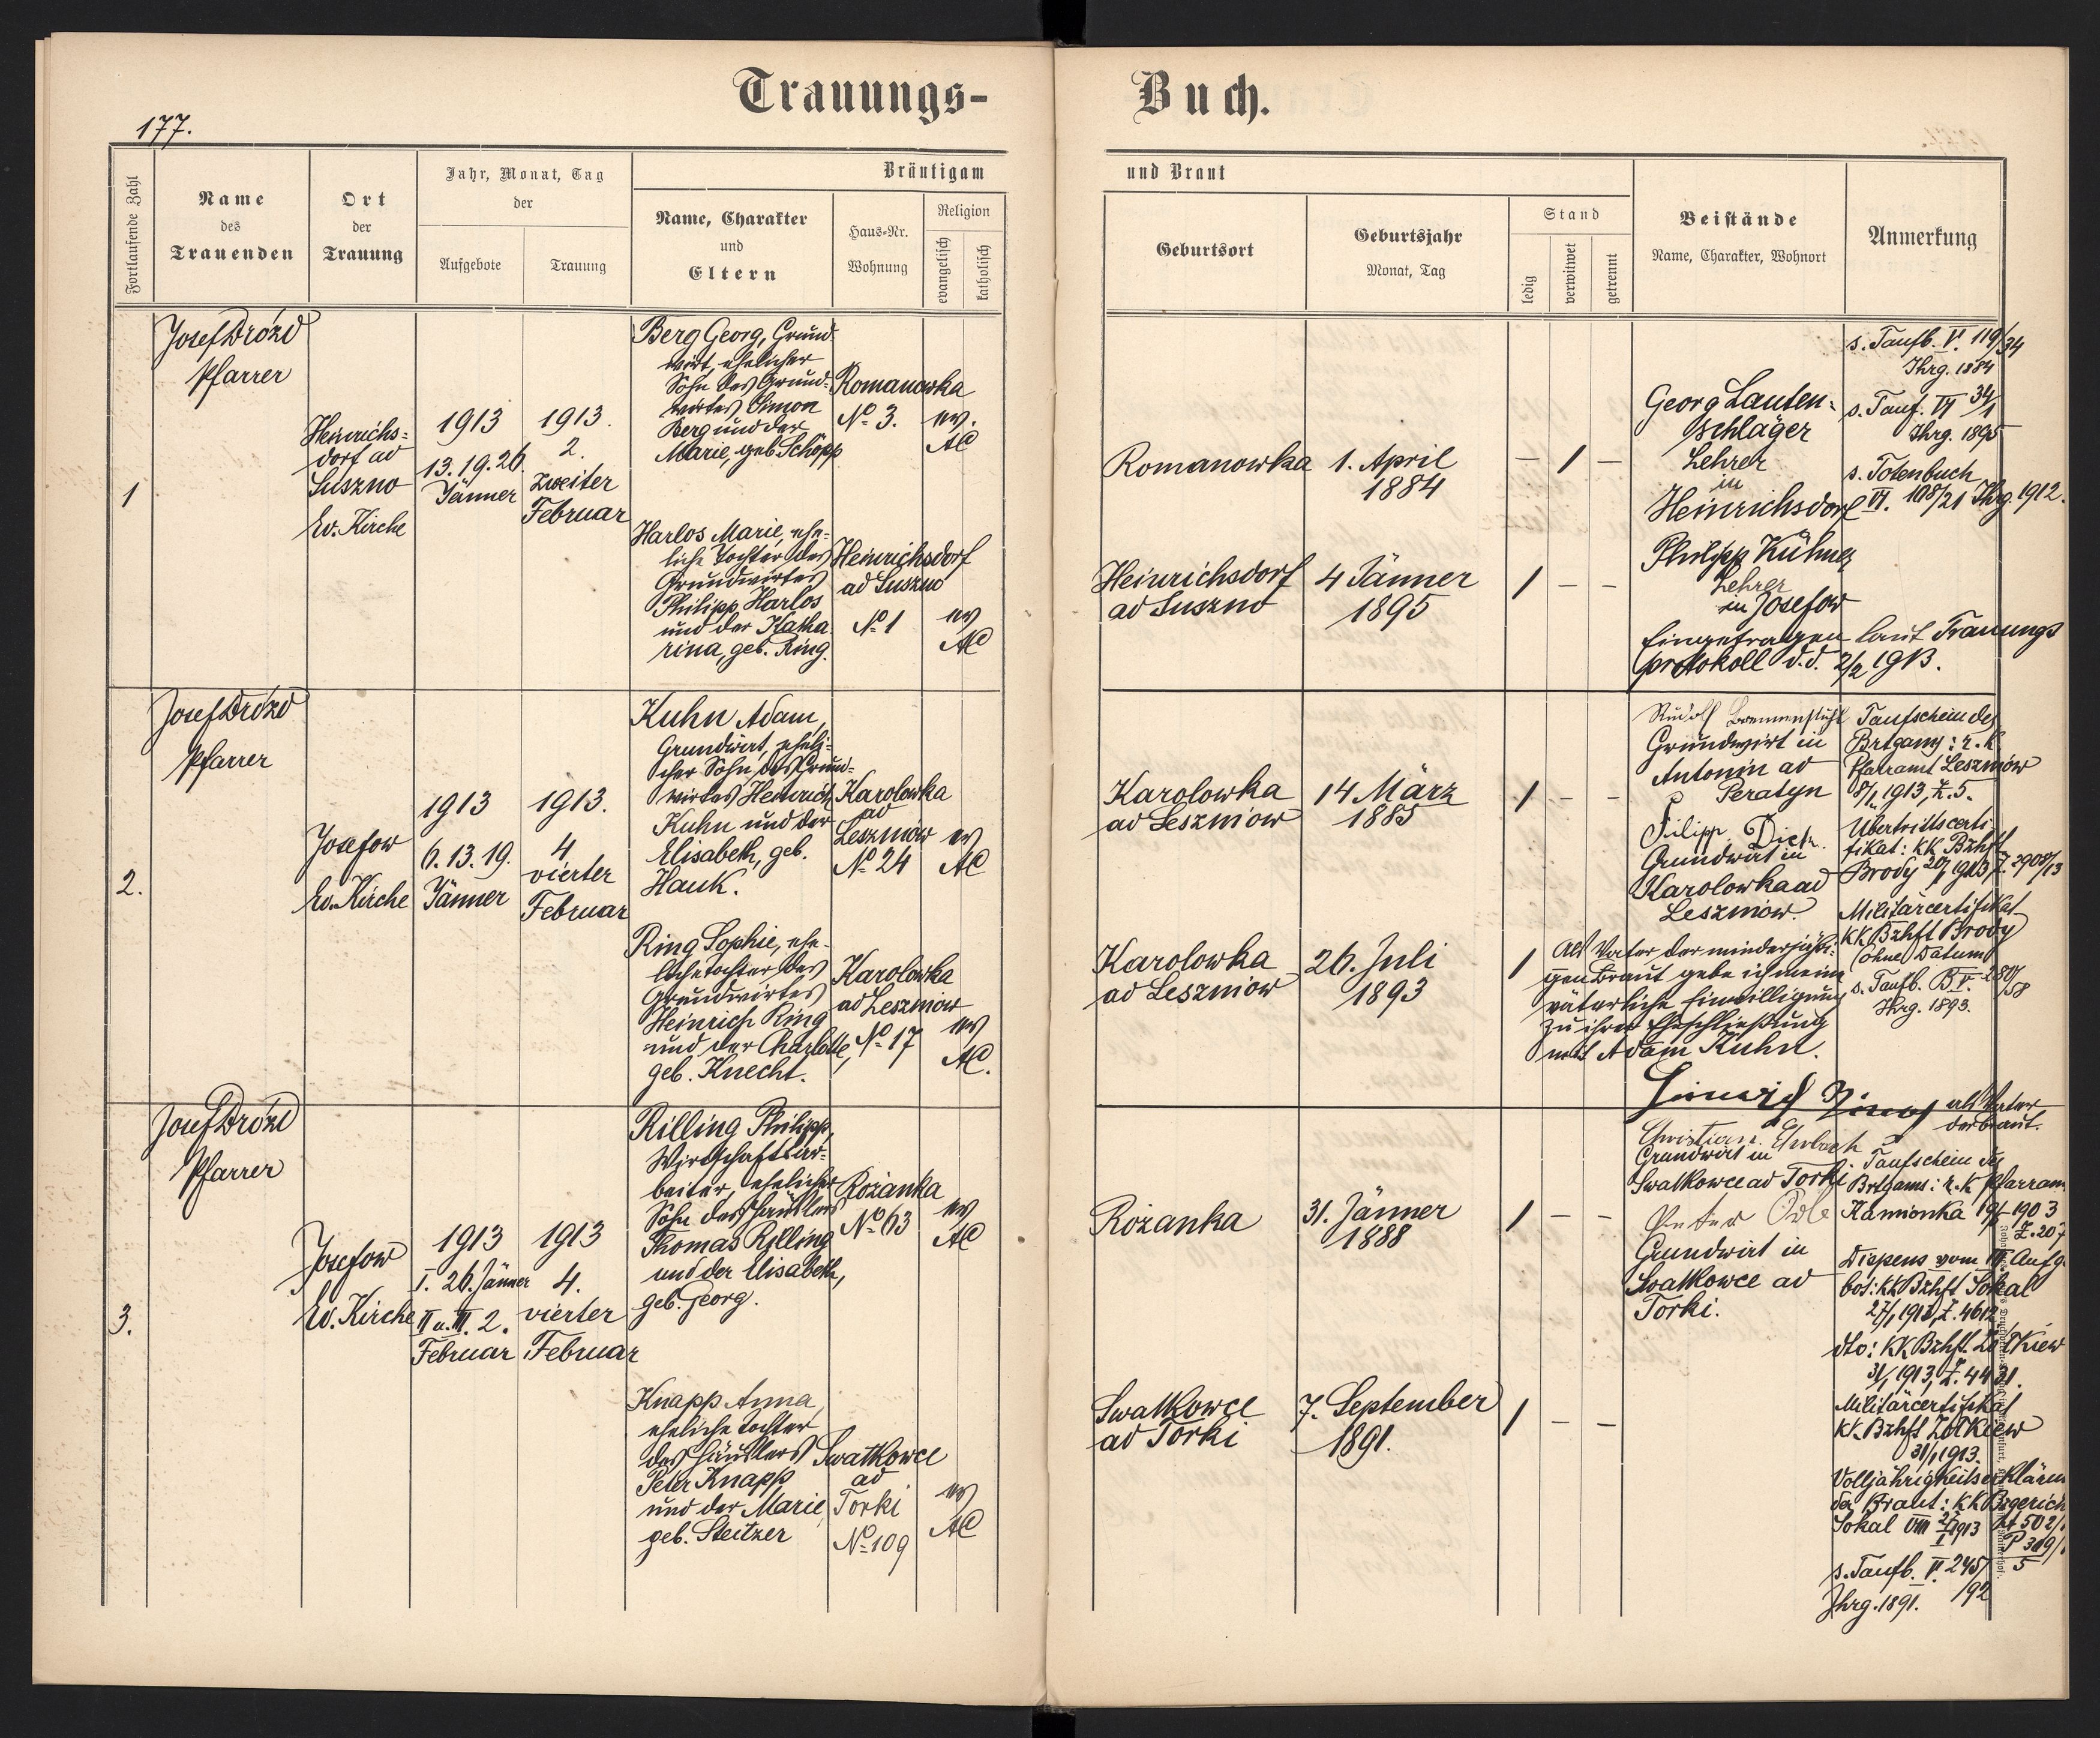 Trauungs-
Buch.
177.
Fortlaufende Zahl
Name
des
Trauenden
Ort
der
Trauung
Jahr, Monat, Tag
der
Aufgebote
Trauung
Bräutigam
Name, Charakter
und
Eltern
Haus-Nr.
Wohnung
Religion
evangelisch
katholisch
und Braut
Geburtsort
Geburtsjahr
Monat, Tag
Stand
ledig
verwitwet
getrennt
Beistände
Name, Charakter, Wohnort
Anmerkung
1
Josef Drozd
Pfarrer
Heinrichs-
dorf ad
Suszno
Ev. Kirche
1913
13. 19. 26.
Jänner
1913.
2.
zweiter
Februar
Berg Georg, Grund-
wirt, ehelicher
Sohn des Grund-
wirtes Simon
Berg und der
Marie, geb. Schöpp
Romanowka
No 3.
ev.
AC
Harlos Marie, ehe-
liche Tochter des
Grundwirtes
Philipp Harlos
und der Katha-
rina, geb. Ring.
Heinrichsdorf
ad Suszno
No 1
ev
AC
Romanowka
1. April
1884
— 1 —
Heinrichsdorf
ad Suszno
4 Jänner
1895
1 — —
Georg Lauten-
schläger
Lehrer
in
Heinrichsdorf
Philipp Kühner
Lehrer
in Josefow
Eingetragen laut Trauungs
protokoll d. d. 2/2 1913.
s. Taufb. V. 119/34
Jhrg. 1884
s. Tauf. VI 34/1
Jhrg. 1895
s. Totenbuch
VI. 108/21 Jhrg. 1912.
2.
Josef Drozd
Pfarrer
Josefow
Ev. Kirche
1913
6. 13. 19.
Jänner
1913.
4
vierter
Februar
Kuhn Adam,
Grundwirt, eheli-
cher Sohn des Grund-
wirtes Heinrich
Kuhn und der
Elisabeth, geb.
Hauk.
Karolowka
ad
Leszniow
No 24
ev
AC
Ring Sophie, ehe-
liche Tochter des
Grundwirtes
Heinrich Ring
und der Charlotte,
geb. Knecht.
Karolowka
ad Leszniow
No 17
ev
AC.
Karolowka
ad Leszniow
14 März
1885
1 — —
Karolowka
ad Leszniow
26. Juli
1893
1
Rudolf
Grundwirt in
Antonin ad
Peratyn
Filipp
Grundwirt in
Karolowka ad
Leszniow.
Als Vater der minderjähri-
gen Braut gebe ich meine
väterliche Einwilligung
zu ihrer Eheschließung
mit Adam Kuhn.
Heinrich Ring als Vater
der Braut.
Taufschein des
Brtgams: r. k.
Pfarramt Leszniow
8/1 1913, Z. 5.
Übertrittscerti-
fikat: kk Bzhft
Brody 20/1 1913 Z. 2908/13
Militärcertifikat
kk Bzhft Brody
(ohne Datum)
s. Taufb. B V. 280/58
Jhrg. 1893.
3.
Josef Drozd
Pfarrer
Josefow
Ev. Kirche
1913
I. 26. Jänner
II u. III. 2.
Februar
1913
4.
vierter
Februar
Rilling Philipp,
Wirtschaftsar-
beiter, ehelicher
Sohn des Häuslers
Thomas Rilling
und der Elisabeth,
geb. Georg.
Rozanka
No 63
ev
AC
Knapp Anna,
eheliche Tochter
des Häuslers
Peter Knapp
und der Marie,
geb. Steitzer
Swatkowce
ad
Torki
No 109
ev
AC
Rozanka
31. Jänner
1888
1 — —
Swatkowce
ad Torki
7. September
1891.
1 — —
Christian
Grundwirt in
Swatkowce ad Torki
Peter
Grundwirt in
Swatkowce ad
Torki.
Taufschein des
Brtgams: r. k. Pfarram
Kamionka 1903
Z. 207
Dispens vom III Aufge-
bot: kk Bzhft Sokal
27/1 1913, Z. 4612.
dto: kk Bzhft. Zolkiew
31/1 1913, Z. 4421.
Militärcertifikat
kk. Bzhft Zolkiew
31/1 1913.
Volljährigkeitserklärun
der Braut: kk Bzgerich
Sokal
s. Taufb. V. 245/92
Jhrg. 1891.